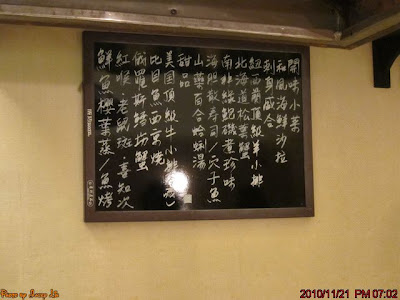 開味小菜
和風海鮮沙拉
刺身盛合
紐西蘭頂級羊小排
北海道松葉蟹
南非鮮鮑磯煮珍味
海膽軟壽司/穴子魚
山藥百合蛤蜊湯
甜品
美国頂級牛小排
比目魚西京燒
俄羅斯鱈場蟹
紅喉、老鼠斑、喜知次
鮮魚櫻葉蒸/魚烤
2010/11/21 PM 07:02